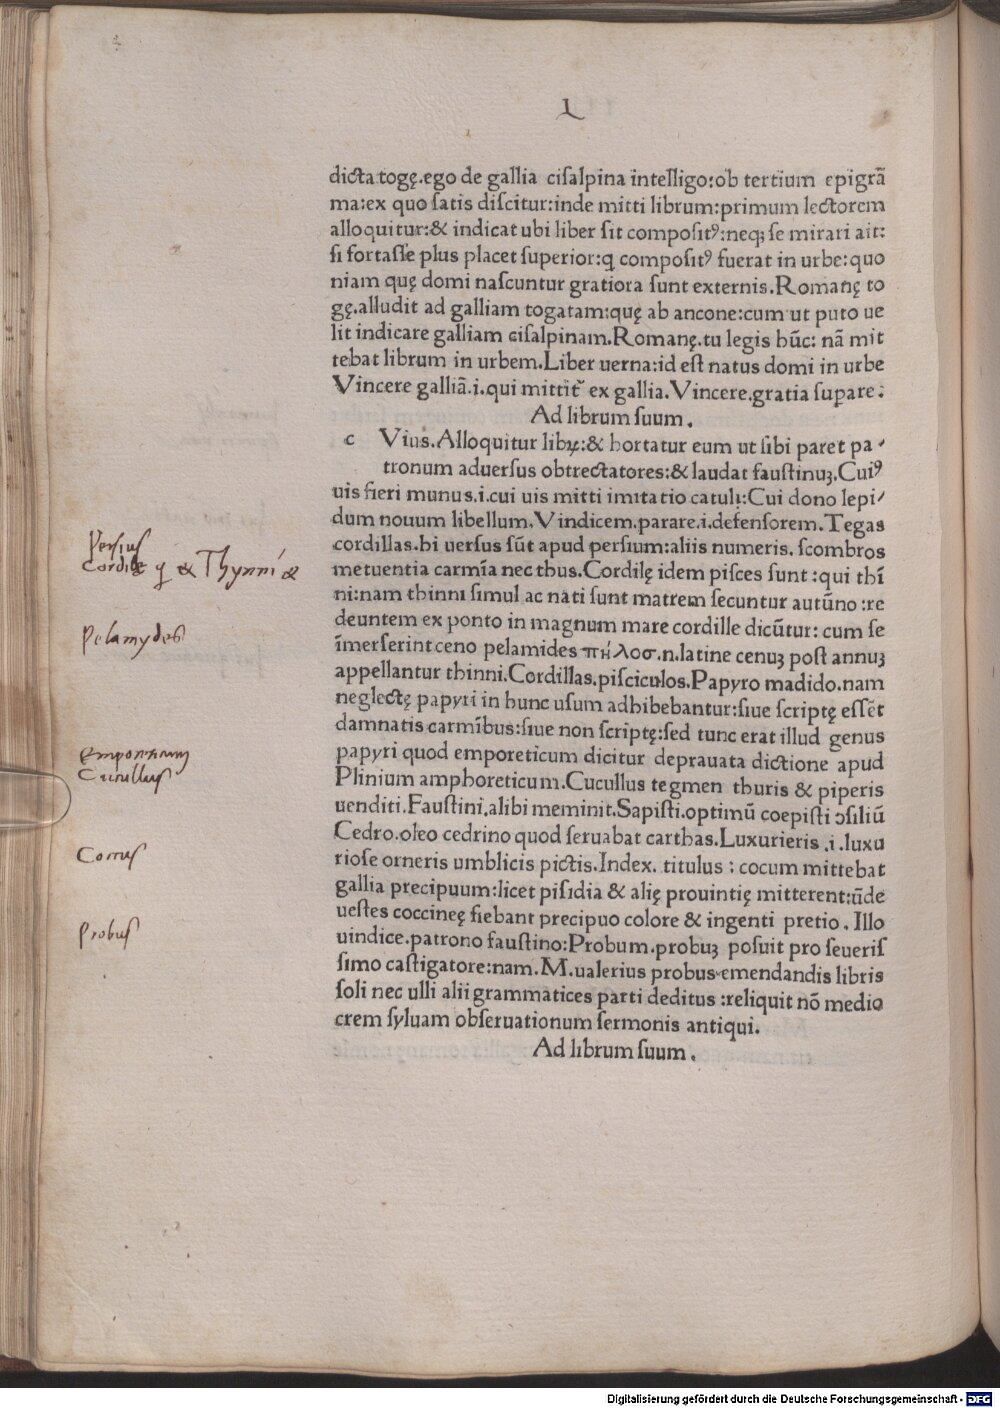 L
dicta togę.ego de gallia cisalpina intelligo:ob tertium epigrã
ma:ex quo satis discitur:inde mitti librum:primum lectorem
alloquitur:& indicat ubi liber sit composit⁹:neq; se mirari ait:
si fortasse plus placet superior:q composit⁹ fuerat in urbe:quo
niam quę domi nascuntur gratiora sunt externis.Romanę to
gę.alludit ad galliam togatam:quę ab ancone:cum ut puto ue
lit indicare galliam cisalpinam.Romanę.tu legis hũc: nã mit
tebat librum in urbem.Liber uerna:id est natus domi in urbe
Vincere galliã.i.qui mittit᷑ ex gallia.Vincere.gratia supare:
Ad librum suum.
c Vius.Alloquitur libꝝ:& hortatur eum ut sibi paret pa-
tronum aduersus obtrectatores:& laudat faustinuꝫ.Cui⁹
uis fieri munus.i.cui uis mitti imitatio catuli:Cui dono lepi/
dum nouum libellum.Vindicem.parare.i.defensorem.Tegas
cordillas.hi uersus sũt apud persium:aliis numeris. scombros
metuentia carmĩa nec thus.Cordilę idem pisces sunt:qui thĩ
ni:nam thinni simul ac nati sunt matrem secuntur autũno:re
deuntem ex ponto in magnum mare cordille dicũtur: cum se
ĩmerserint ceno pelamides πήλοσ.n.latine cenuꝫ post annuꝫ
appellantur thinni.Cordillas.pisciculos.Papyro madido.nam
neglectę papyri in hunc usum adhibebantur:siue scriptę essẽt
damnatis carmĩbus:siue non scriptę:sed tunc erat illud genus
papyri quod emporeticum dicitur deprauata dictione apud
Plinium amphoreticum.Cucullus tegmen thuris & piperis
uenditi.Faustini.alibi meminit.Sapisti.optimũ coepisti ↄsiliũ
Cedro.oleo cedrino quod seruabat carthas.Luxurieris .i.luxu
riose orneris umblicis pictis.Index. titulus : cocum mittebat
gallia precipuum:licet pisidia & alię prouintię mitterent:ũde
uestes coccineę fiebant precipuo colore & ingenti pretio . Illo
uindice.patrono faustino:Probum.probuꝫ posuit pro seueris
simo castigatore:nam.M.ualerius probus emendandis libris
soli nec ulli alii grammatices parti deditus :reliquit nõ medio
crem syluam obseruationum sermonis antiqui.
Ad librum suum.
Persius
Cordilę q & Thynni &
Pelamydes
Cucullus
Cocus
Probus
Digitalisierung gefördert durch die Deutsche Forschungsgemeinschaft - DFG